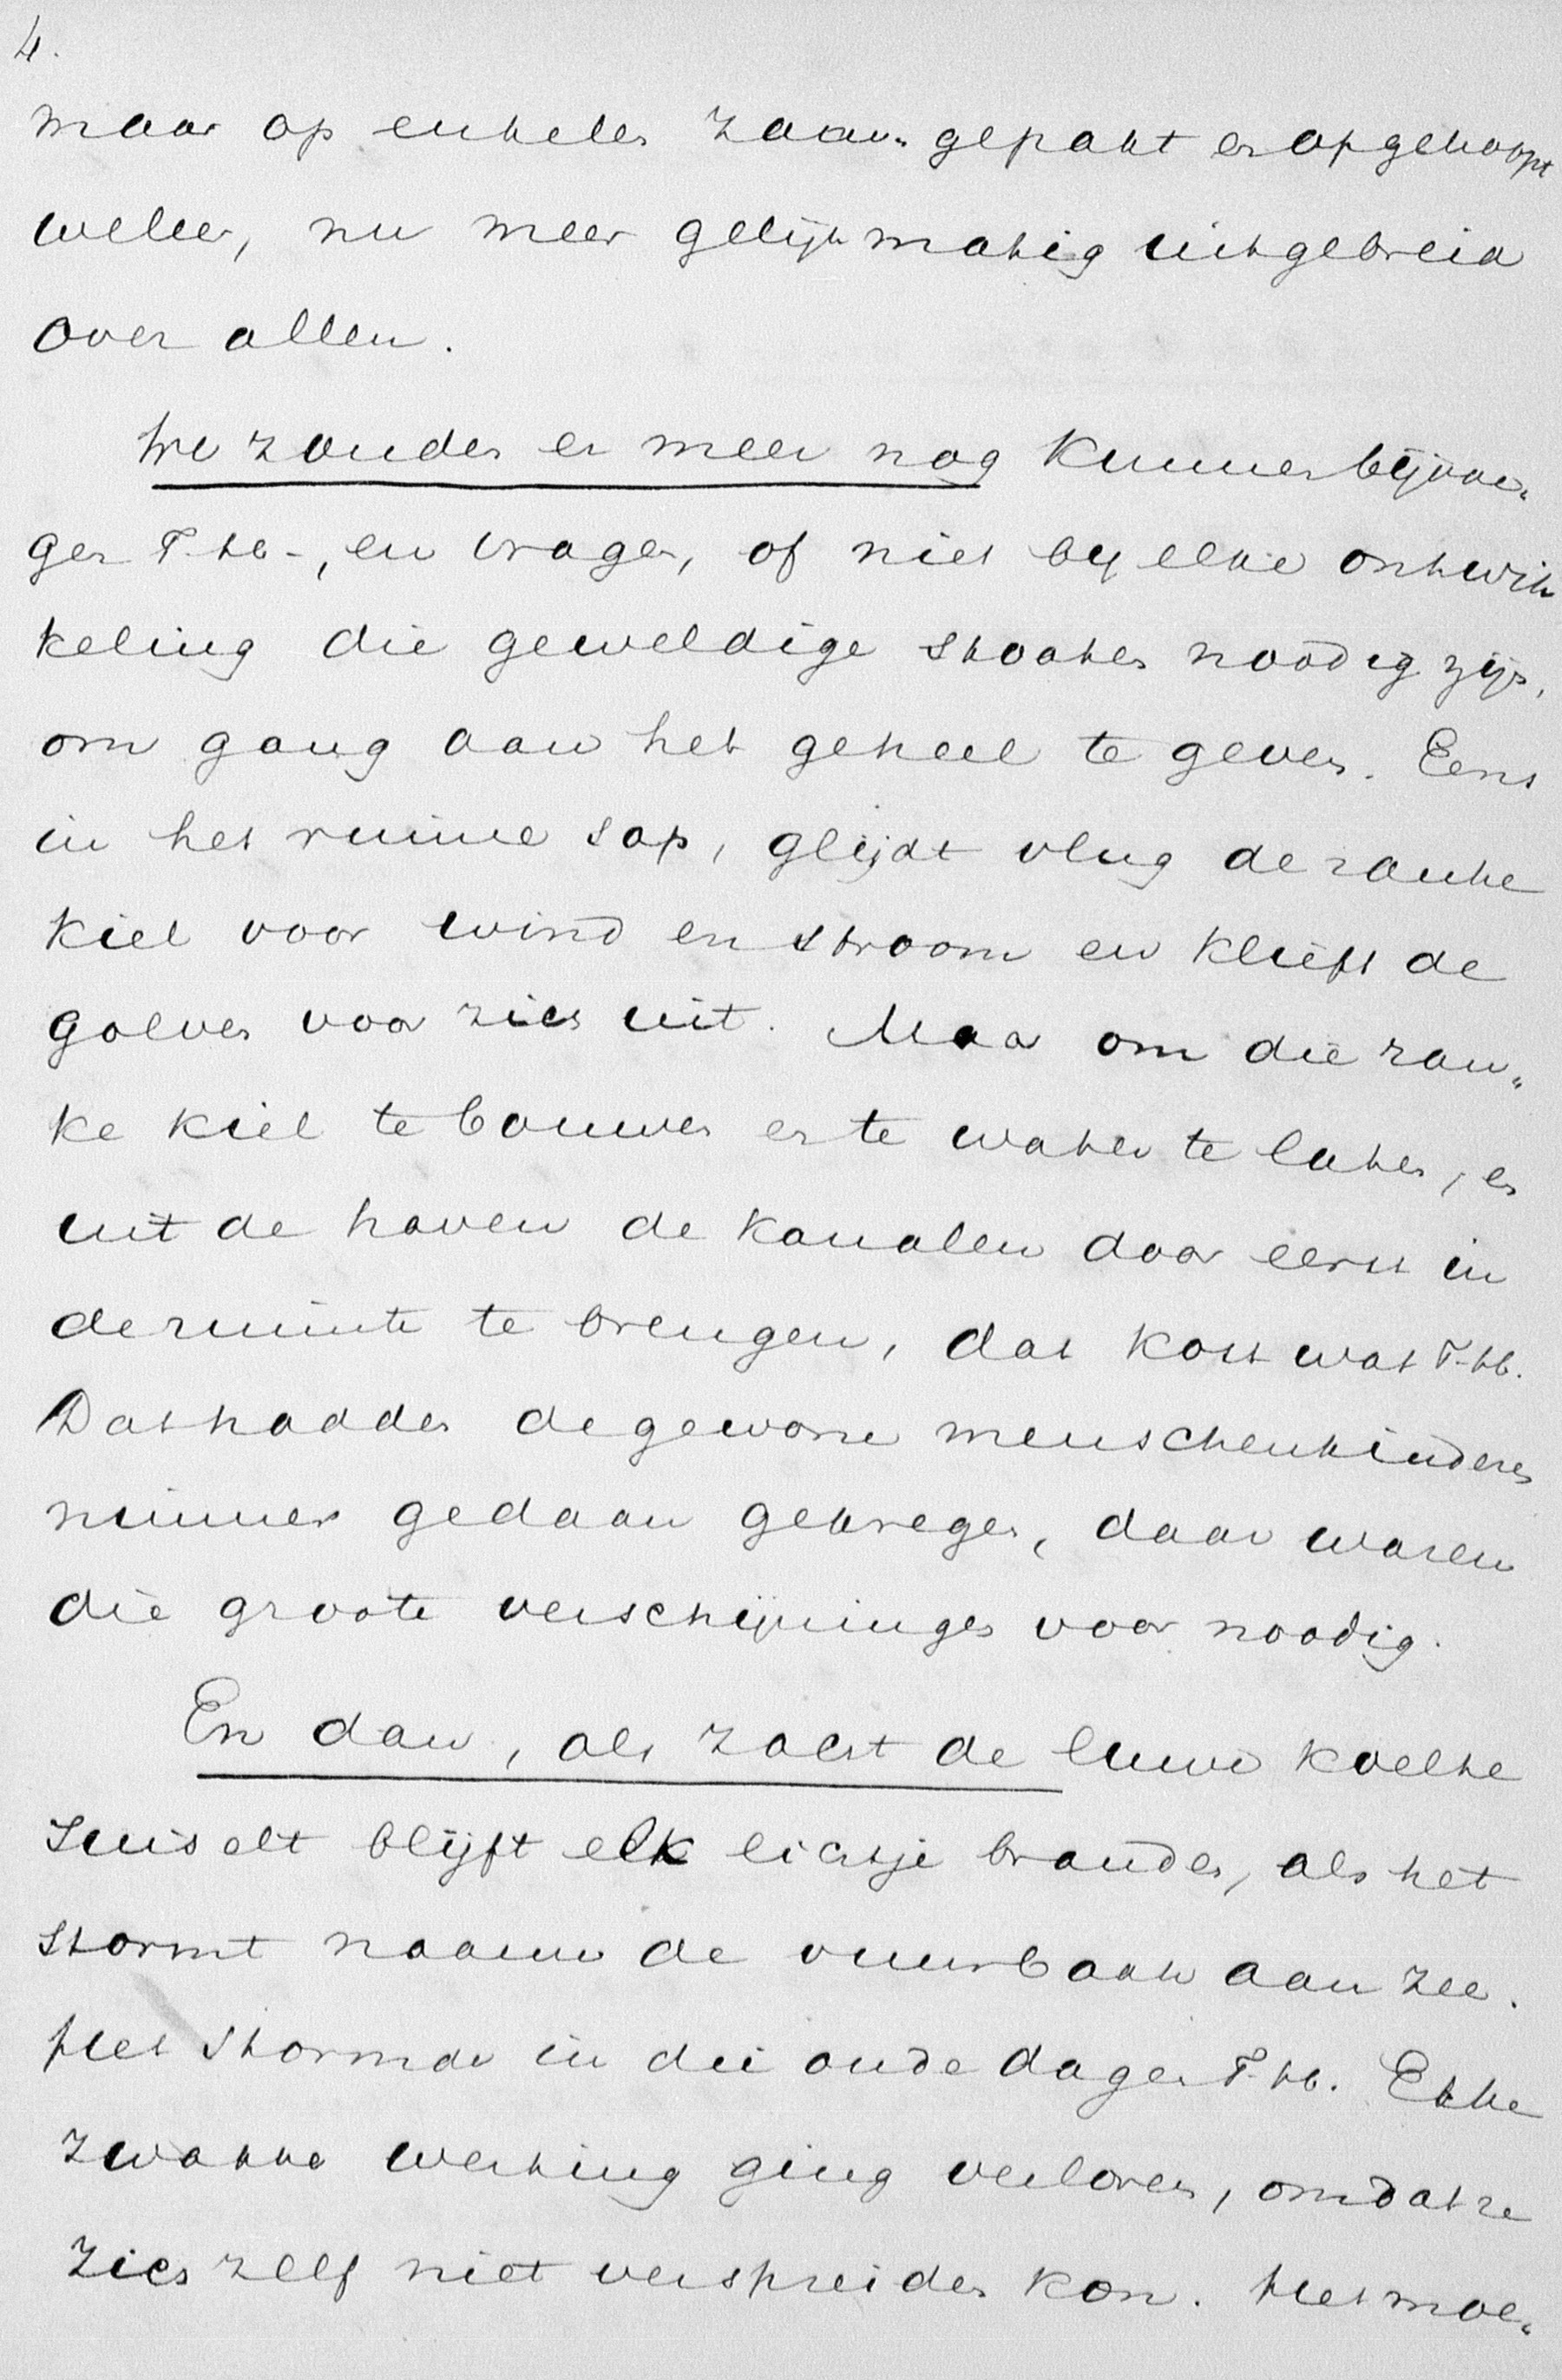 4.
maar op enkelen zaam„gepakt en opgehoopt
weleer, nu meer gelijkmatig uitgebreid
over allen.
We zouden er meer nog kunnen bijvoe„
gen T.hb-, en vragen, of niet by elke ontwik
keling die geweldige schokken noodig zijn,
om gang aan het geheel te geven. Eens
in het ruime sop, glijdt vlug de ranke
kiel voor wind en stroom en klieft de
golven voor zich uit. Maar om die ran„
ke kiel te bouwen en te water te laten, en
uit de haven de kanalen door eerst in
de ruimte te brengen, dat kost wat T.hb.
Dat hadden de gewone menschenkinderen
nimmer gedaan gekregen, daar waren
die groote verschijningen voor noodig.
En dan, als zacht de luwe koelte
suiselt blijft elk lichtje branden, als het
stormt naauw de vuurbaak aan zee.
Het stormde in die oude dagen T.hb. Elke
zwakke werking ging verloren, omdat ze
zich zelf niet verspreiden kon. Het moe„